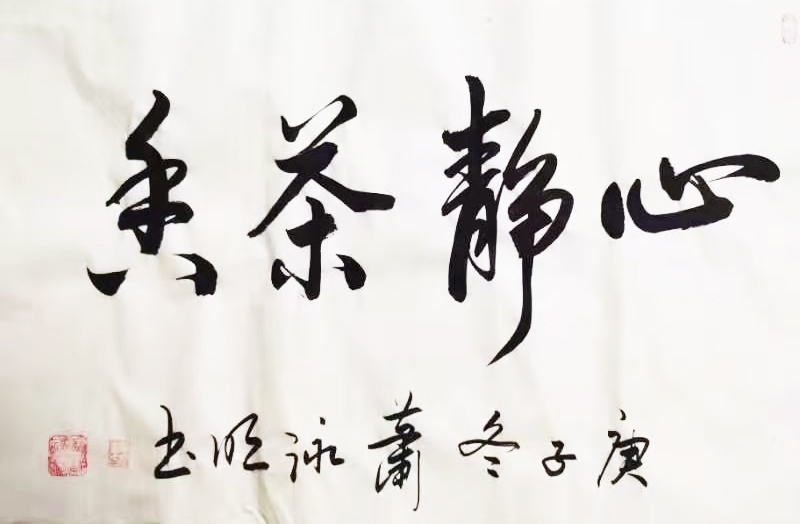 心静茶香
庚子冬萧咏明书